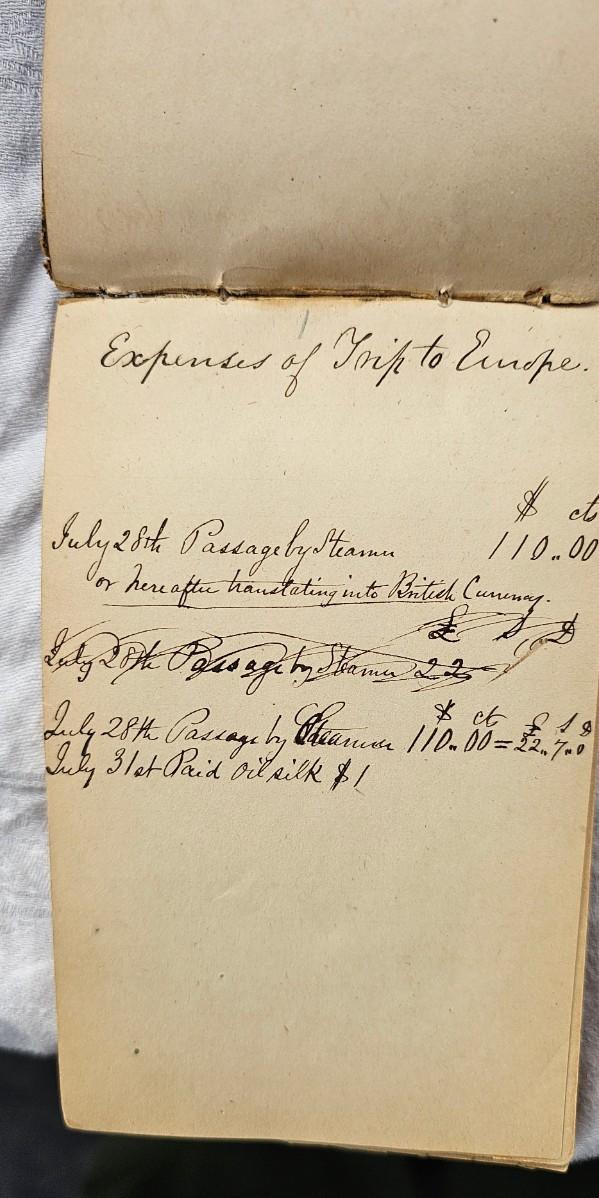 Expenses of Trip to Europe.
$ cts
July 28th Passage by Steamer 110.. 00
or hereafter translating into British Currency.
£ S, D
July 28th Passage by Steamer 22
$ cts £ S D
July 28th Passage by Steamer 110.. 00 = 22.. 7.. 0
July 31st Paid oil silk $1